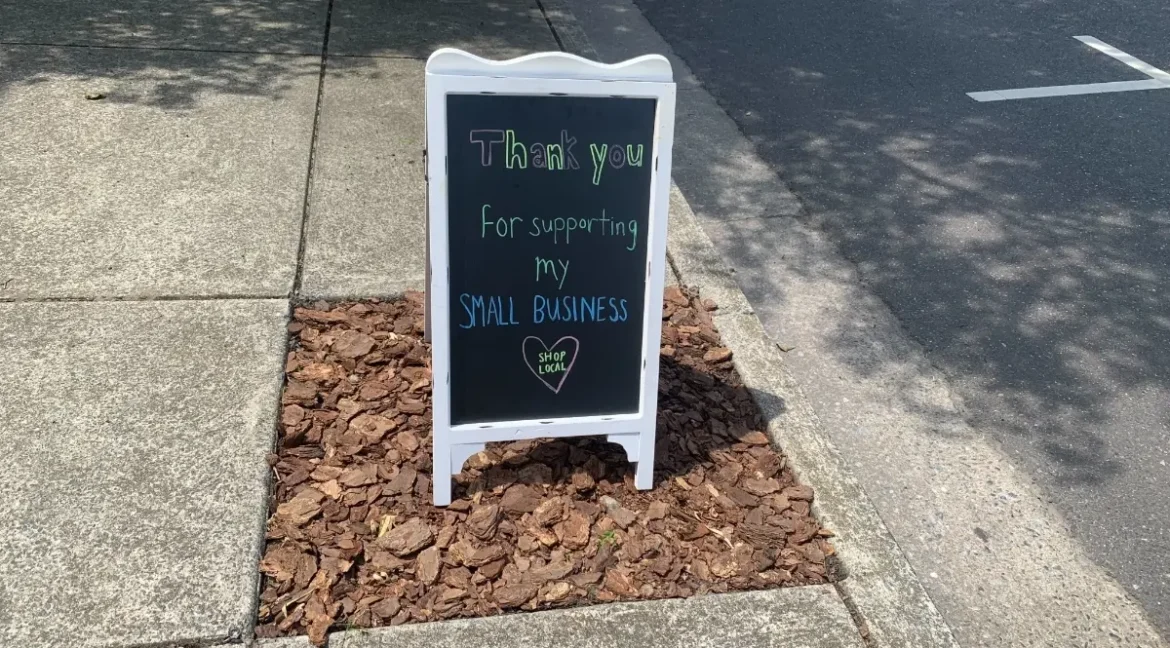 Thank you
for supporting
my
SMALL BUSINESS
SHOP
LOCAL